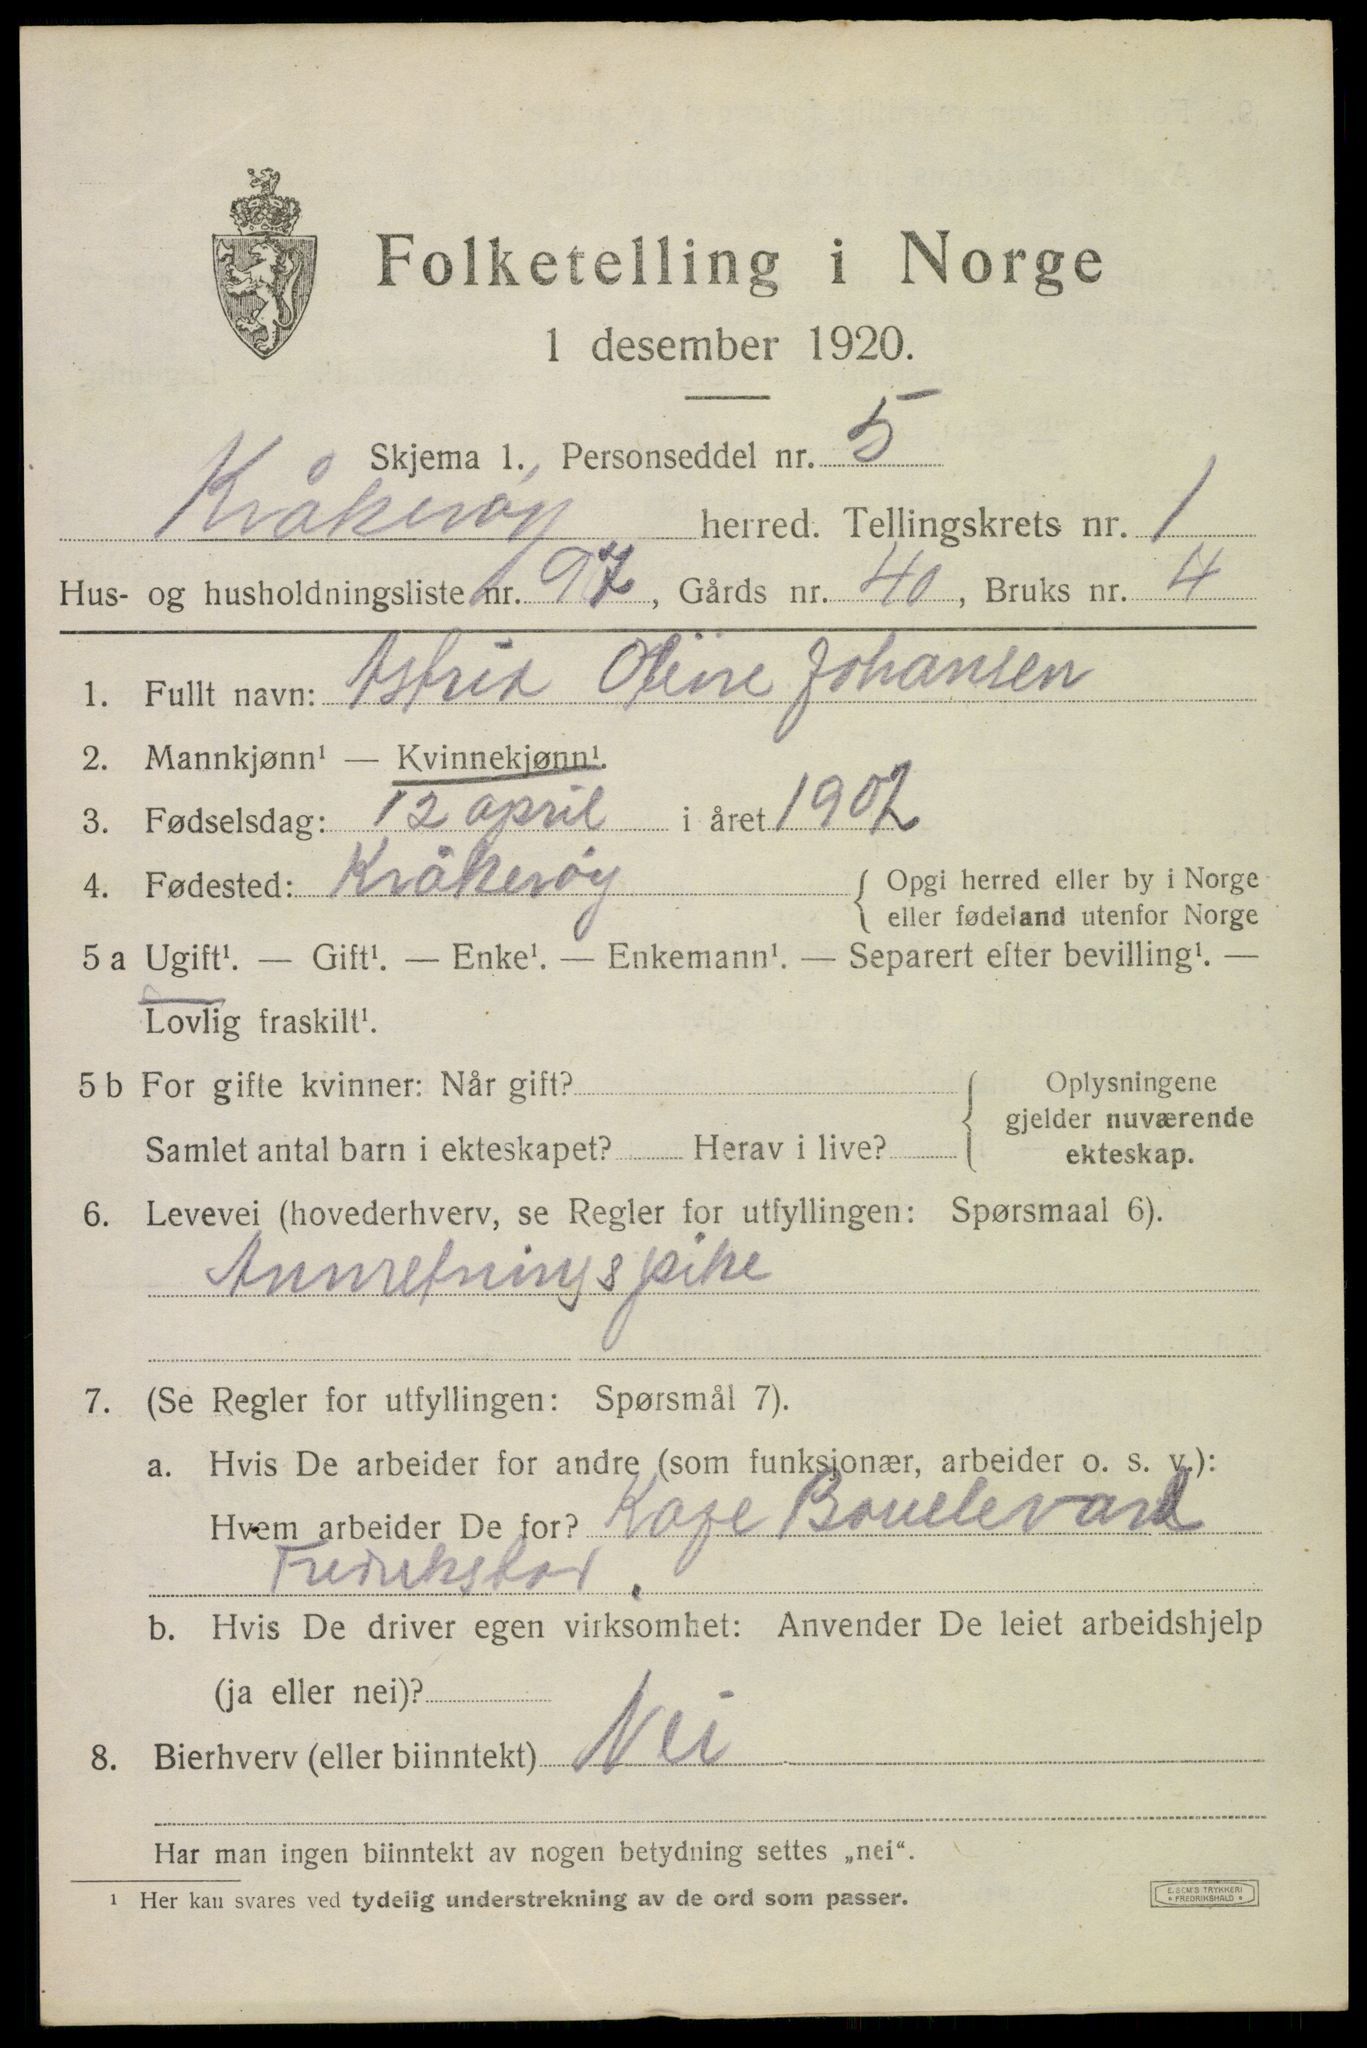 Folketelling i Norge
1 desember 1920.
Skjema 1. Personseddel nr. 5
Kråkerøy herred. Tellingskrets nr. 1
Hus- og husholdningsliste nr. 97, Gårds nr. 40, Bruks nr. 4
1. Fullt navn: Astrid Oline Johansen
2. Mannkjønn¹ — Kvinnekjønn¹.
3. Fødselsdag: 12 april i året 1902
4. Fødested: Kråkerøy { Opgi herred eller by i Norge
eller fødeland utenfor Norge
5 a Ugift¹. — Gift¹. — Enke¹. — Enkemann¹. — Separert efter bevilling¹. —
Lovlig fraskilt¹.
5 b For gifte kvinner: Når gift?
Samlet antal barn i ekteskapet? Herav i live?
{ Oplysningene
gjelder nuværende
ekteskap.
6. Levevei (hovederhverv, se Regler for utfyllingen: Spørsmaal 6).
Annretningspike
7. (Se Regler for utfyllingen: Spørsmål 7).
a. Hvis De arbeider for andre (som funksjonær, arbeider o. s. v.):
Hvem arbeider De for? Kafe Bouelevard
Fredrikstad.
b. Hvis De driver egen virksomhet: Anvender De leiet arbeidshjelp
(ja eller nei)?
8. Bierhverv (eller biinntekt) Nei
Har man ingen biinntekt av nogen betydning settes „nei“.
¹ Her kan svares ved tydelig understrekning av de ord som passer.
E. SEM'S TRYKKERI
* FREDRIKSHALD *